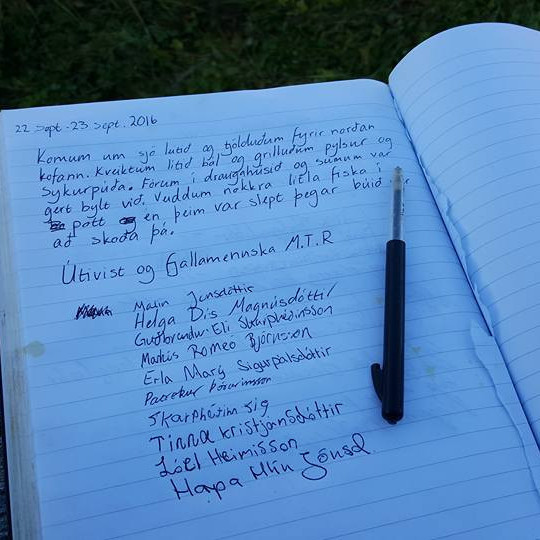 22 Sept - 23. Sept. 2016
Komum um sjö lutið og tjölduðum fyrir norðan
kofann. Kveiktum lítið bál og grilluðum pylsur og
sykurpúða. Fórum í draugahúsið og sumum var
gert bylt við. Vuddum nokkra litla fiska í
pott en þeim var slept þegar búið var
að skoða þá.
Útivist og fjallamennska M.T.R
Malín Jónsdóttir
Helga Dís Magnúsdóttir
Guðbrandur Elí Skarphéðinsson
Markús Romeo Björnsson
Erla Marý Sigurpálsdóttir
Þórarinsson
Skarphéðinn Sig
Tinna Kristjánsdóttir
Jóel Heimisson
Harpa Hlín Jónsd